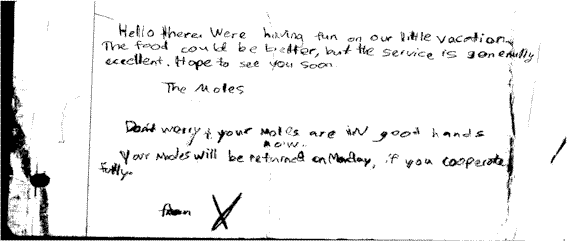 Hello there. Were having fun on our little vacation.
The food could be better, but the service is generally
excellent. Hope to see you soon
The Moles
Don't worry, your moles are in good hands
now.
Your Moles will be returned on Monday, if you cooperate
fully.
from X